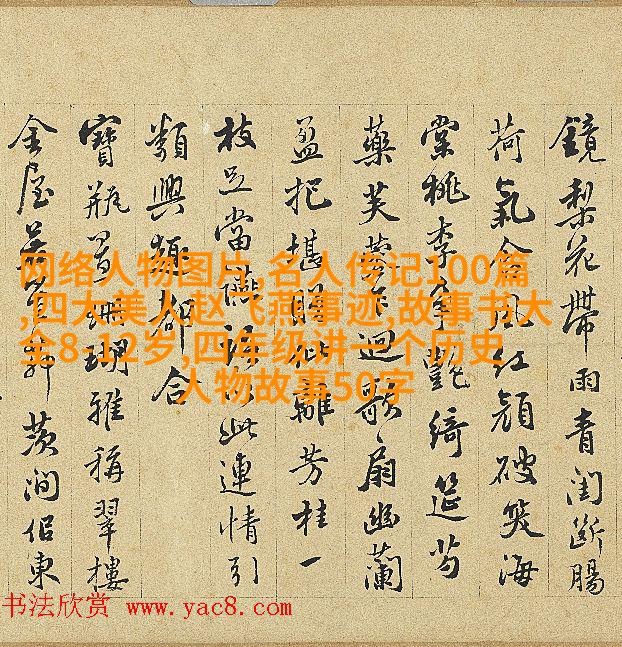 鏡梨花帶雨青閨斷腸
荷氣含風紅顏破笑海
棠桃李爭艷綺筵芍
藥芙蓉作迴歌扇幽蘭
盈把堪贈似離芳桂一
枝足當燕訴此連情引
類興趣都合
寶瓶置珊瑚雅稱翠樓
金屋羨澗侶東
网络人物图片,名人传记100篇
,四大美人赵飞燕事迹,故事书大
全8-12岁,四年级讲一个历史
人物故事50字
书法欣赏 www.yac8.com